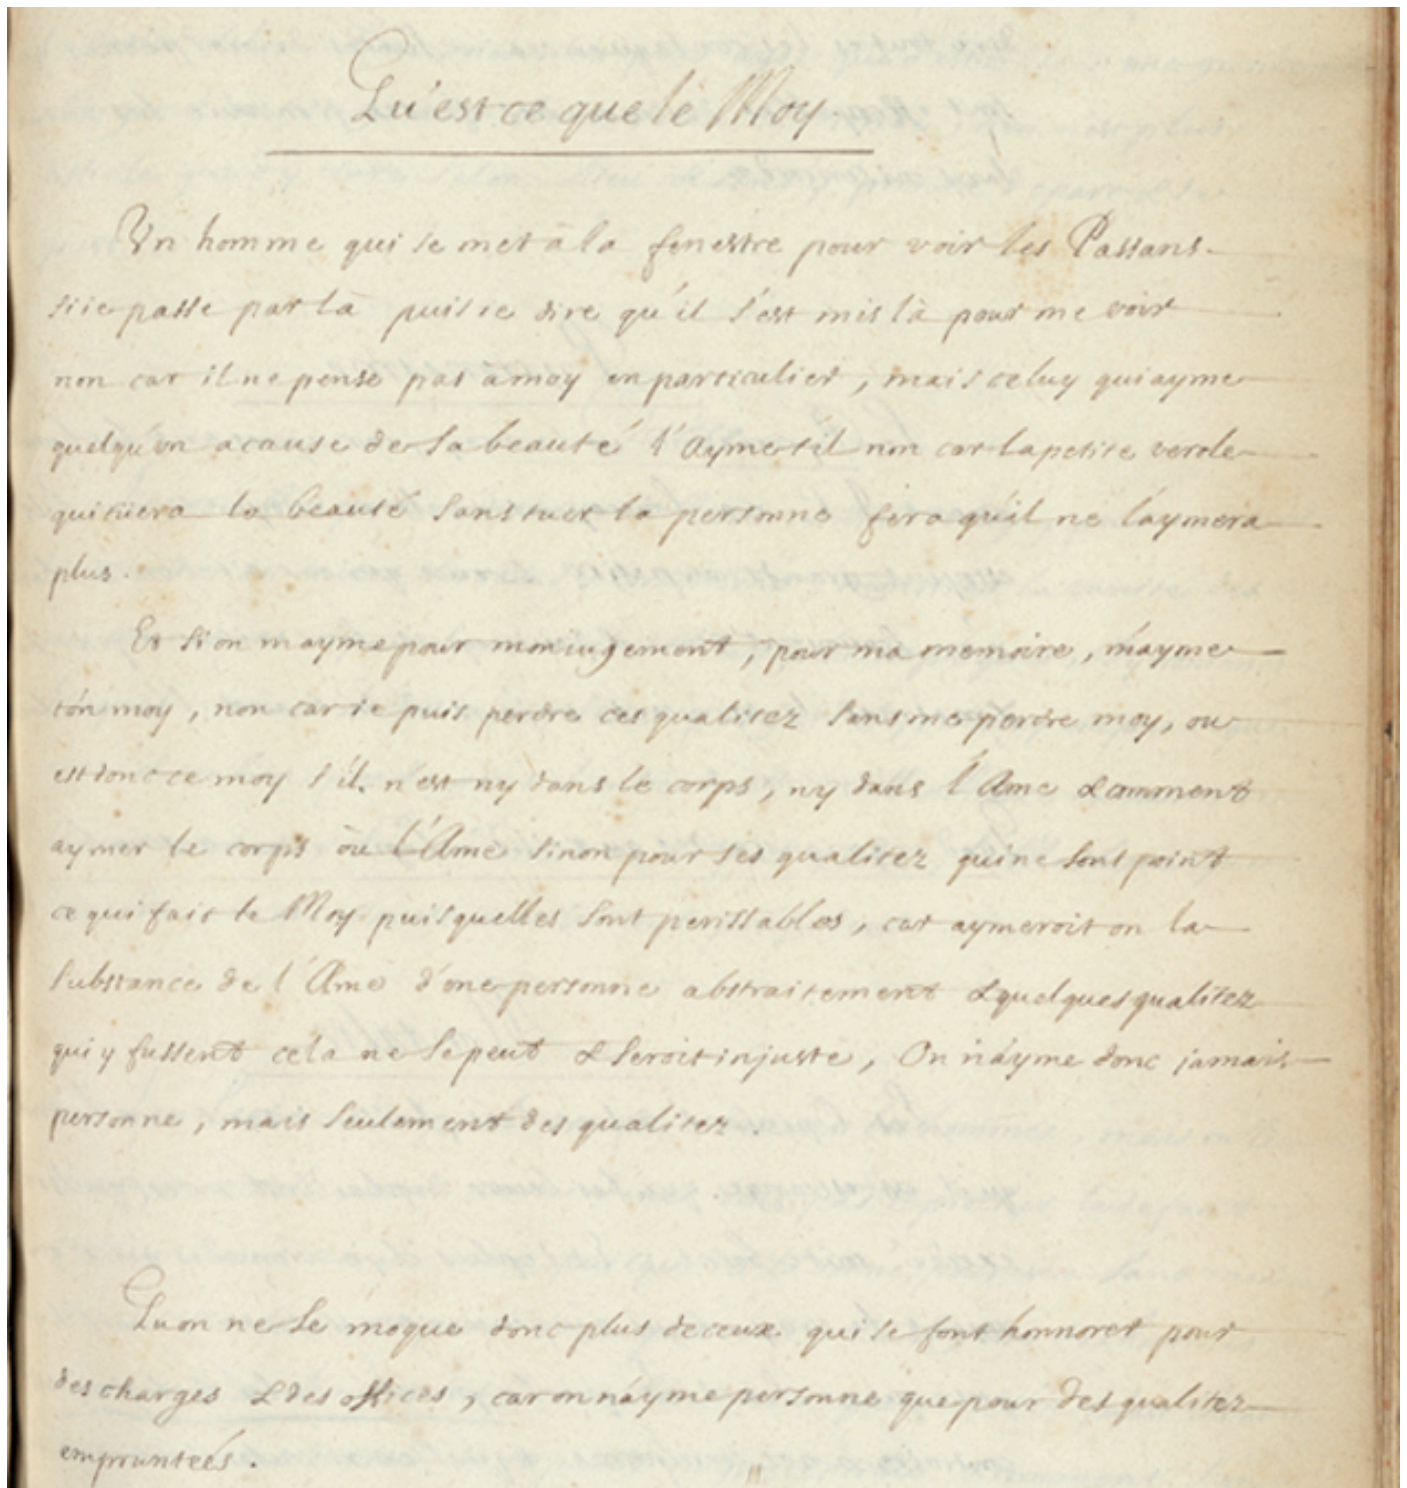 Qu'est ce que le Moy
Un homme qui se met à la fenestre pour voir les Passans
si ie passe par là puis ie dire qu'il s'est mis là pour me voir
non car il ne pense pas à moy en particulier, mais celuy qui ayme
quelqu'un a cause de sa beauté l'ayme t'il non car la petite verole
qui tüera la beauté sans tuer la personne fera qu'il ne l'aymera
plus.
Et si on m'ayme pour mon iugement, pour ma memoire, m'ayme
t'on moy, non car ie puis perdre ces qualitez sans me perdre moy, ou
est donc ce moy s'il n'est ny dans le corps, ny dans l'Ame & comment
aymer le corps òu l'Ame sinon pour ses qualitez qui ne sont point
ce qui fait le Moy puisquelles sont perissables, car aymeroit on la
substance de l'Ame d'une personne abstraitement & quelques qualitez
qui y fussent cela ne se peut & seroit injuste, On n'ayme donc jamais
personne, mais seulement des qualitez.
Quon ne se moque donc plus de ceux qui se font honnorer pour
des charges & des offices, car on n'ayme personne que pour des qualitez
empruntées.